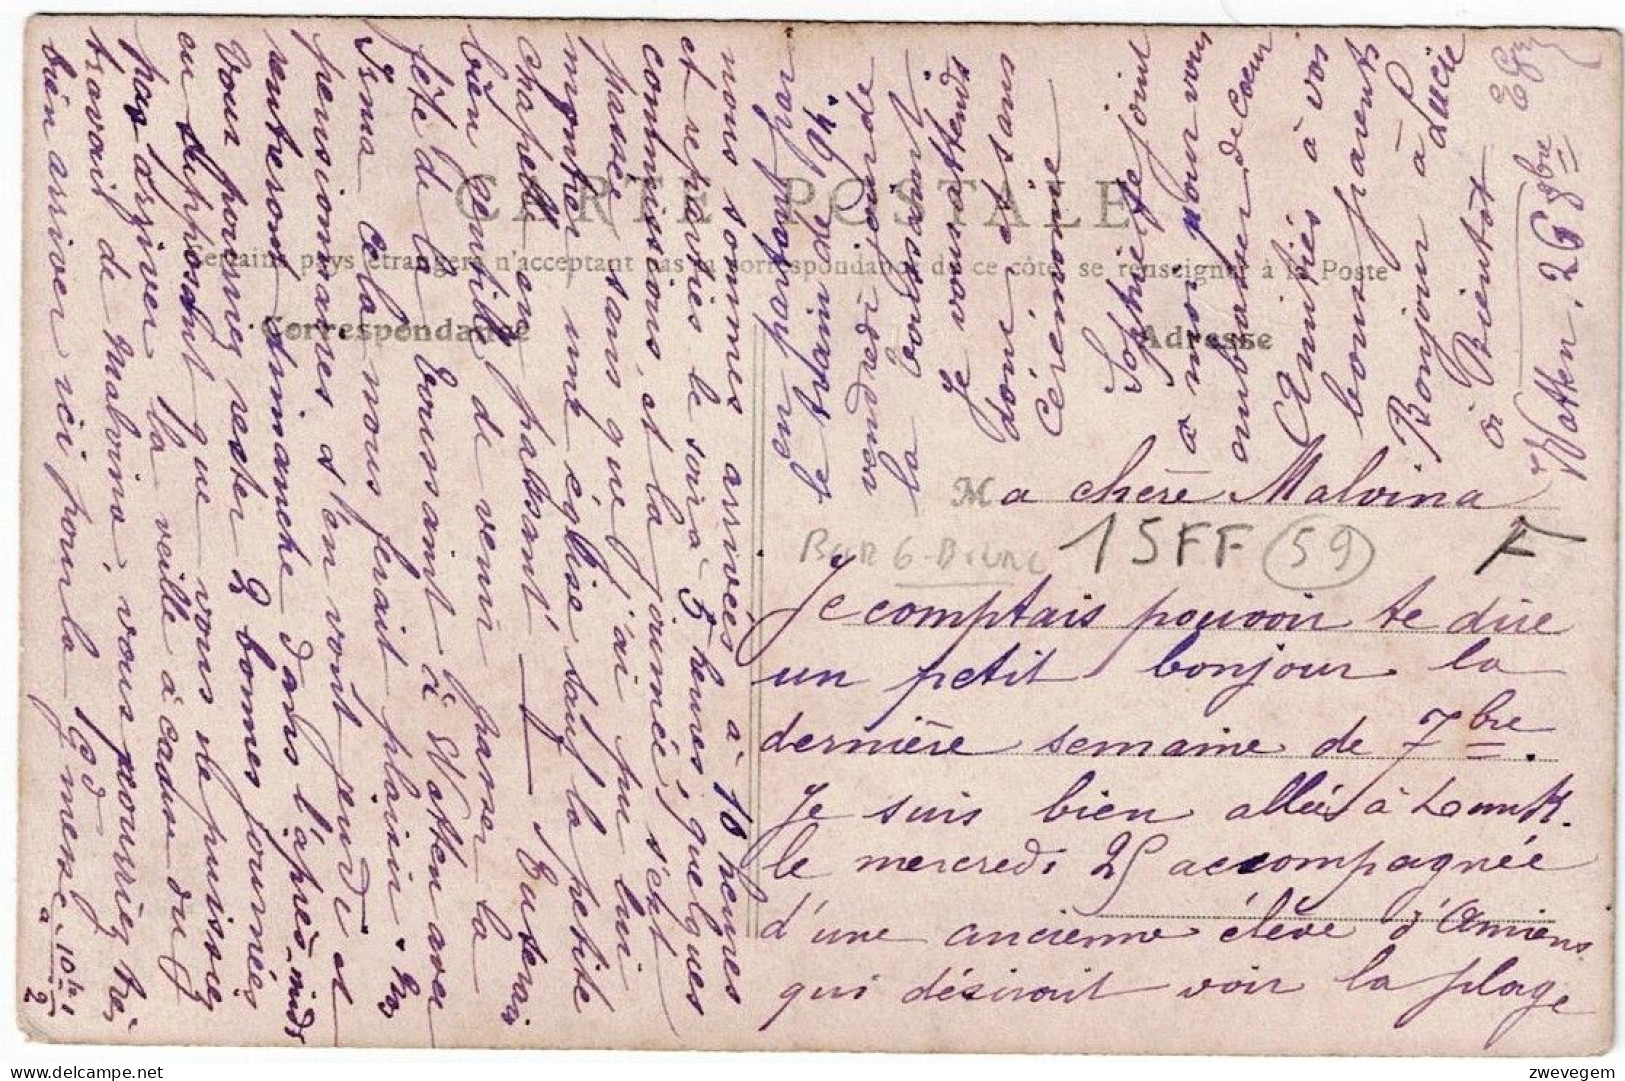 CARTE POSTALE
Certains pays étrangers n'acceptant pas la correspondance de ce côté, se renseigner à la Poste
Correspondance
Adresse
Watten, 26 8bre
Ma chère Malvina
15FF (59)
Je comptais pouvoir te dire
un petit bonjour la
dernière semaine de 7bre.
Je suis bien allée à Dunk.
le mercredi 25 accompagnée
d'une ancienne élève d'Amiens
qui désirait voir la plage
nous sommes arrivées à 10 heures
et reparties le soir à 5 heures, quelques
commissions, et la journée s'est
passée sans que j'ai pu lui
montrer une église sauf la petite
chapelle en passant. Tu serais
bien gentille de venir passer la
fête de la Toussaint à Watten avec
Irma cela nous ferait plaisir. Les
pensionnaires s'en vont jeudi et
rentreront dimanche dans l'après-midi
Vous pourriez rester 2 bonnes journées
en supposant que vous ne puissiez
pas arriver la veille à cause du
travail de Malvina, vous pourriez très
bien arriver ici pour la messe à 10h 1/2
le train de 9h.
vendredi jour de
la Toussaint
Je vous attends
donc et sans
cérémonie
Sophie se joint
à moi pour vous
embrasser de cœur
Amitiés à vos
bons parents
Bonjour à Lucie
à Bientôt
zwevegem